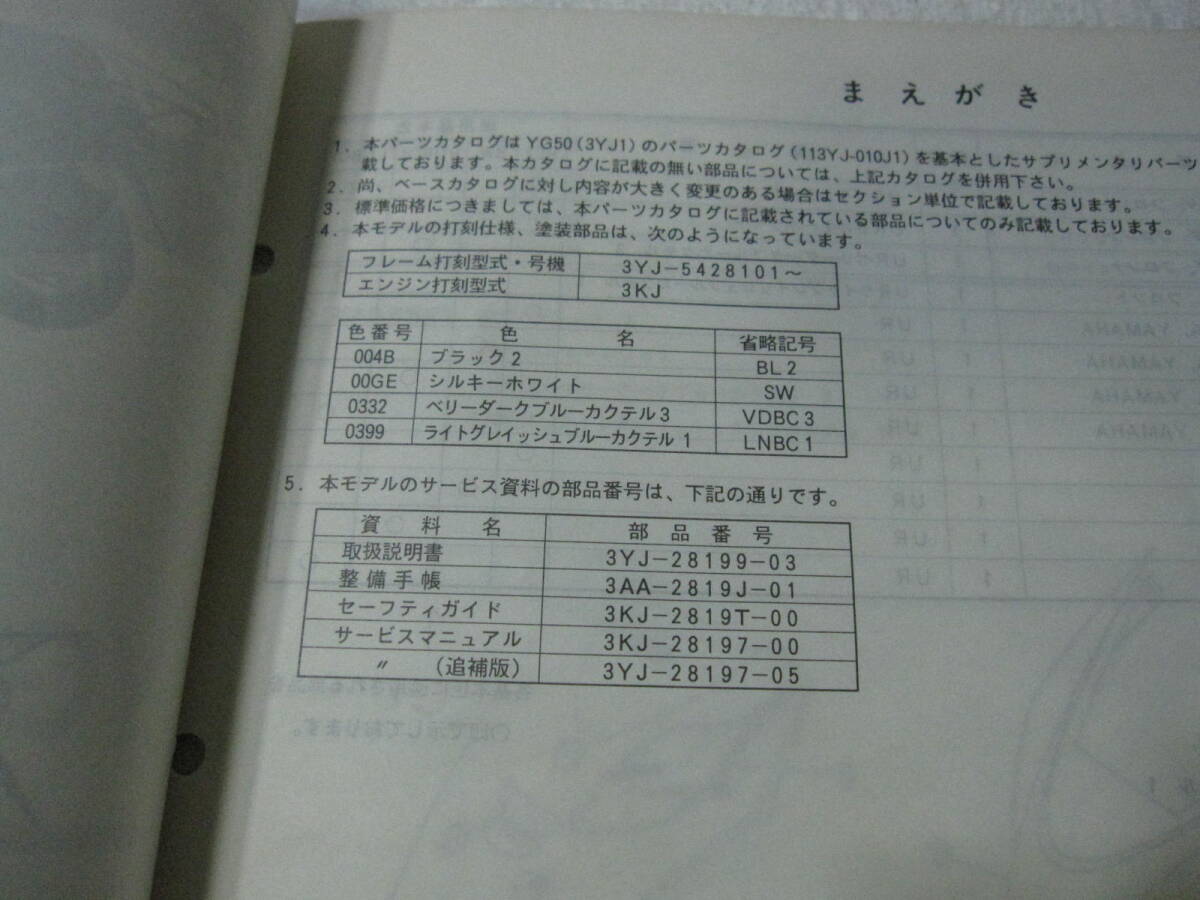 まえがき
1. 本パーツカタログはYG50(3YJ1)のパーツカタログ(113YJ-010J1)を基本としたサプリメンタリパーツ
載しております。本カタログに記載の無い部品については、上記カタログを併用下さい。
2. 尚、ベースカタログに対し内容が大きく変更のある場合はセクション単位で記載しております。
3. 標準価格につきましては、本パーツカタログに記載されている部品についてのみ記載しております。
4. 本モデルの打刻仕様、塗装部品は、次のようになっています。
フレーム打刻型式・号機 3YJ-5428101~
エンジン打刻型式 3KJ
色番号 色名 省略記号
004B ブラック2 BL2
00GE シルキーホワイト SW
0332 ベリーダークブルーカクテル3 VDBC3
0399 ライトグレイッシュブルーカクテル1 LNBC1
5. 本モデルのサービス資料の部品番号は、下記の通りです。
資料名 部品番号
取扱説明書 3YJ-28199-03
整備手帳 3AA-2819J-01
セーフティガイド 3KJ-2819T-00
サービスマニュアル 3KJ-28197-00
〃 (追補版) 3YJ-28197-05